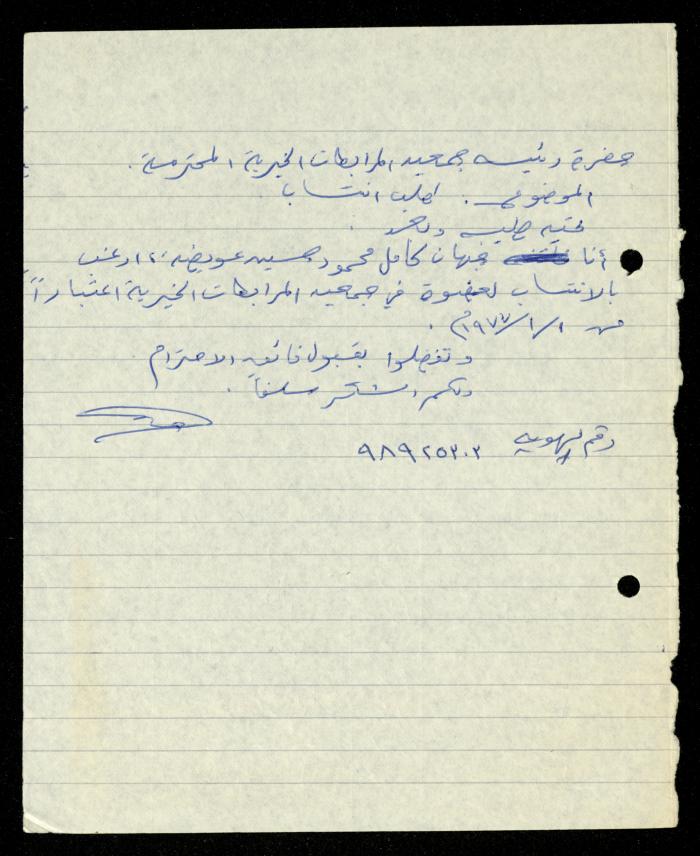 حضرة رئيسة جمعية المرابطات الخيرية المحترمة.
الموضوع: طلب انتساب
تحية طيبة وبعد.
أنا جهان كامل محمود حسين عويضه، ارغب
بالانتساب لعضوية في جمعية المرابطات الخيرية اعتباراً
من ١٩٧٧/١/١م.
وتفضلوا بقبول فائق الاحترام
ولكم الشكر سلفاً.
رقم الهوية ٩٨٩٢٥٣٠٢